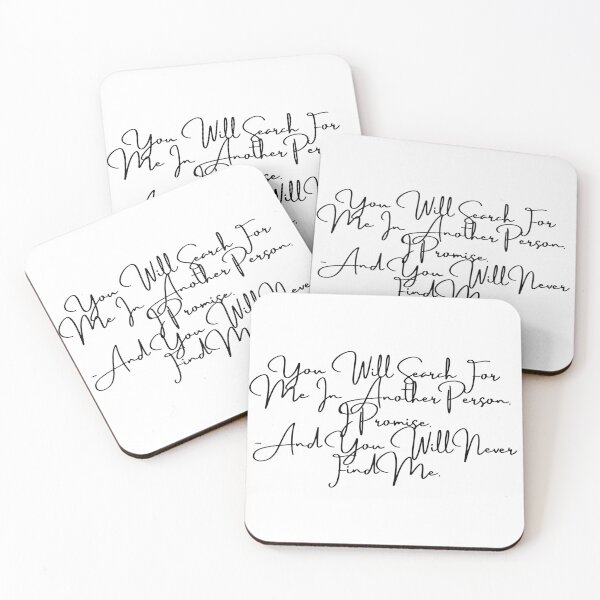 You Will Search For
Me In Another
Will
You Will Search For
Me In Another Person.
I Promise.
-And You Will Never
Find Me.
You Will Search For
Me In Another Person.
I Promise.
-And You Will
Find Me
You Will Search For
Me In Another Person.
I Promise.
-And You Will Never
Find Me.